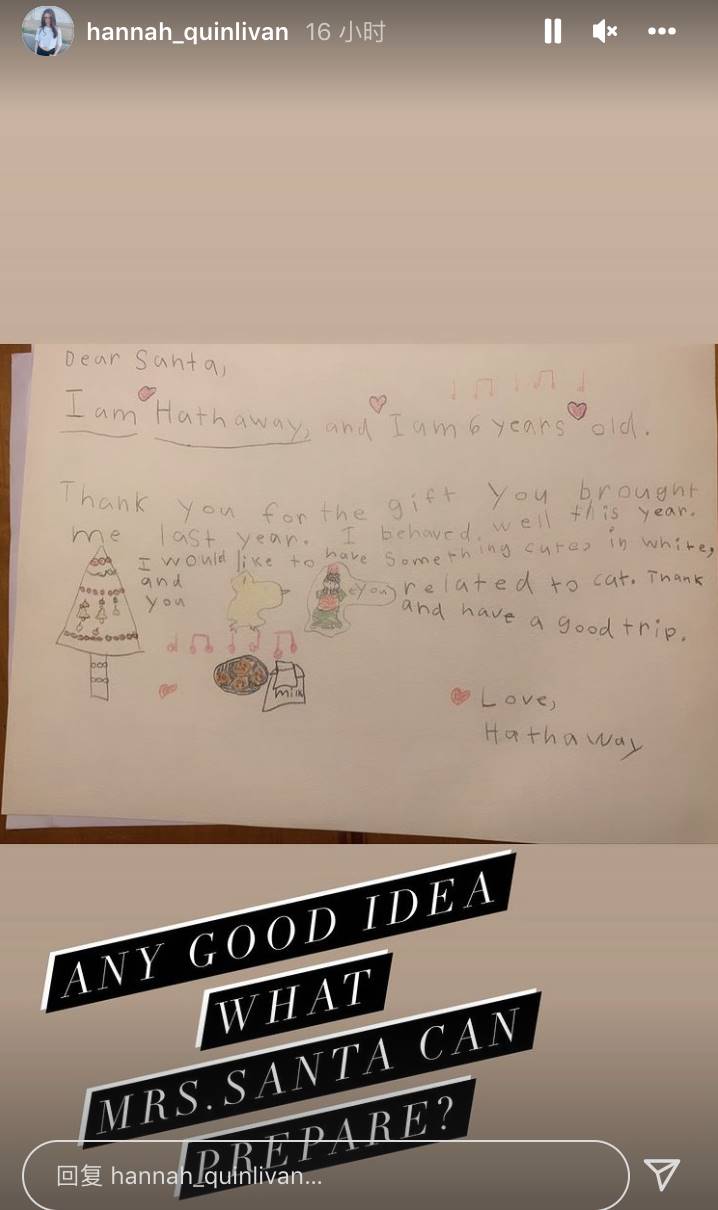 hannah_quinlivan 16 小时
Dear Santa,
I am Hathaway, and I am 6 years old.
Thank you for the gift you brought
me last year. I behaved well this year.
I would like to have something cute, in white,
and related to cat. Thank
you and have a good trip.
you
milk
Love,
Hathaway
ANY GOOD IDEA
WHAT
MRS.SANTA CAN
PREPARE?
回复 hannah_quinlivan...